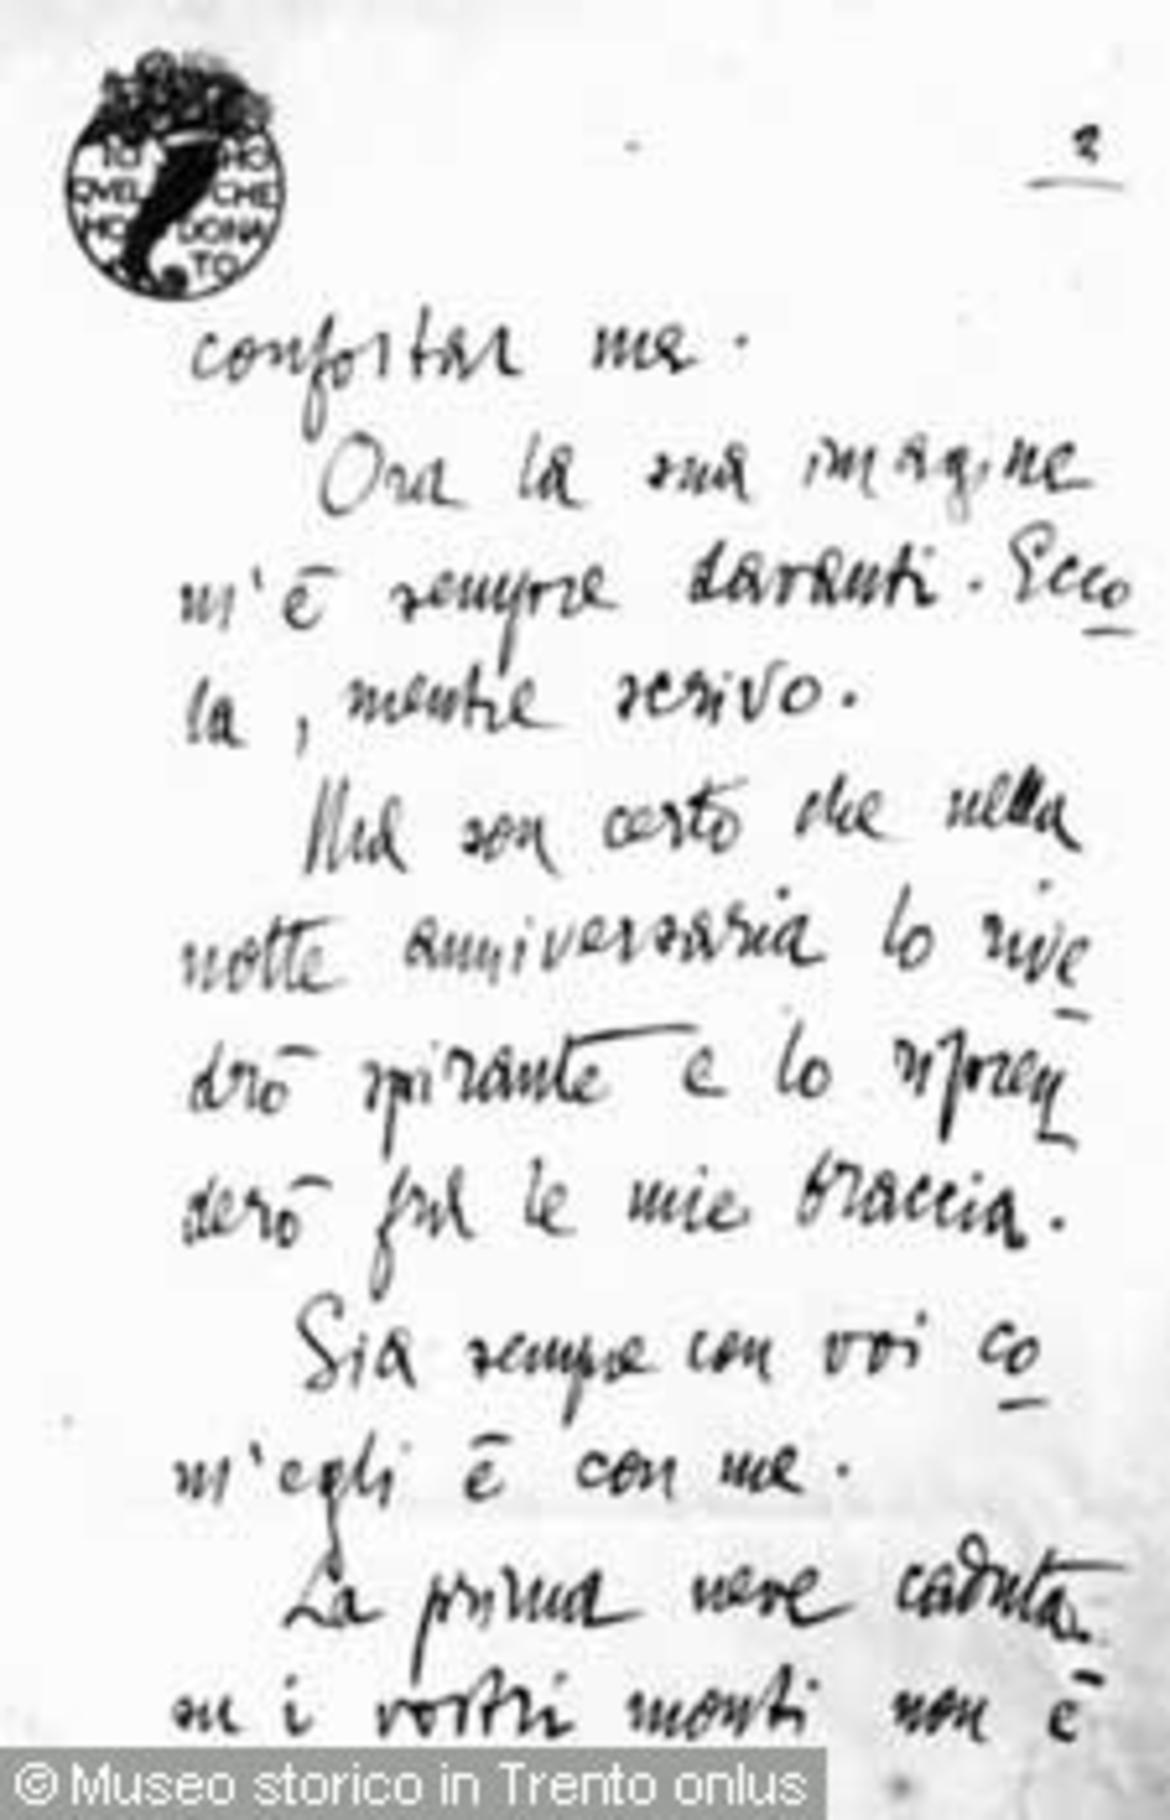 IO HO
QVEL CHE
HO DONA
TO
2
confortar me.
Ora la sua imagine
m'è sempre davanti. Ecco
la, mentre scrivo.
Ma son certo che nella
notte anniversaria lo rive
drò spirante e lo ripren
derò fra le mie braccia.
Sia sempre con voi co
m'egli è con me.
La prima neve caduta
su i vostri monti non è
© Museo storico in Trento onlus